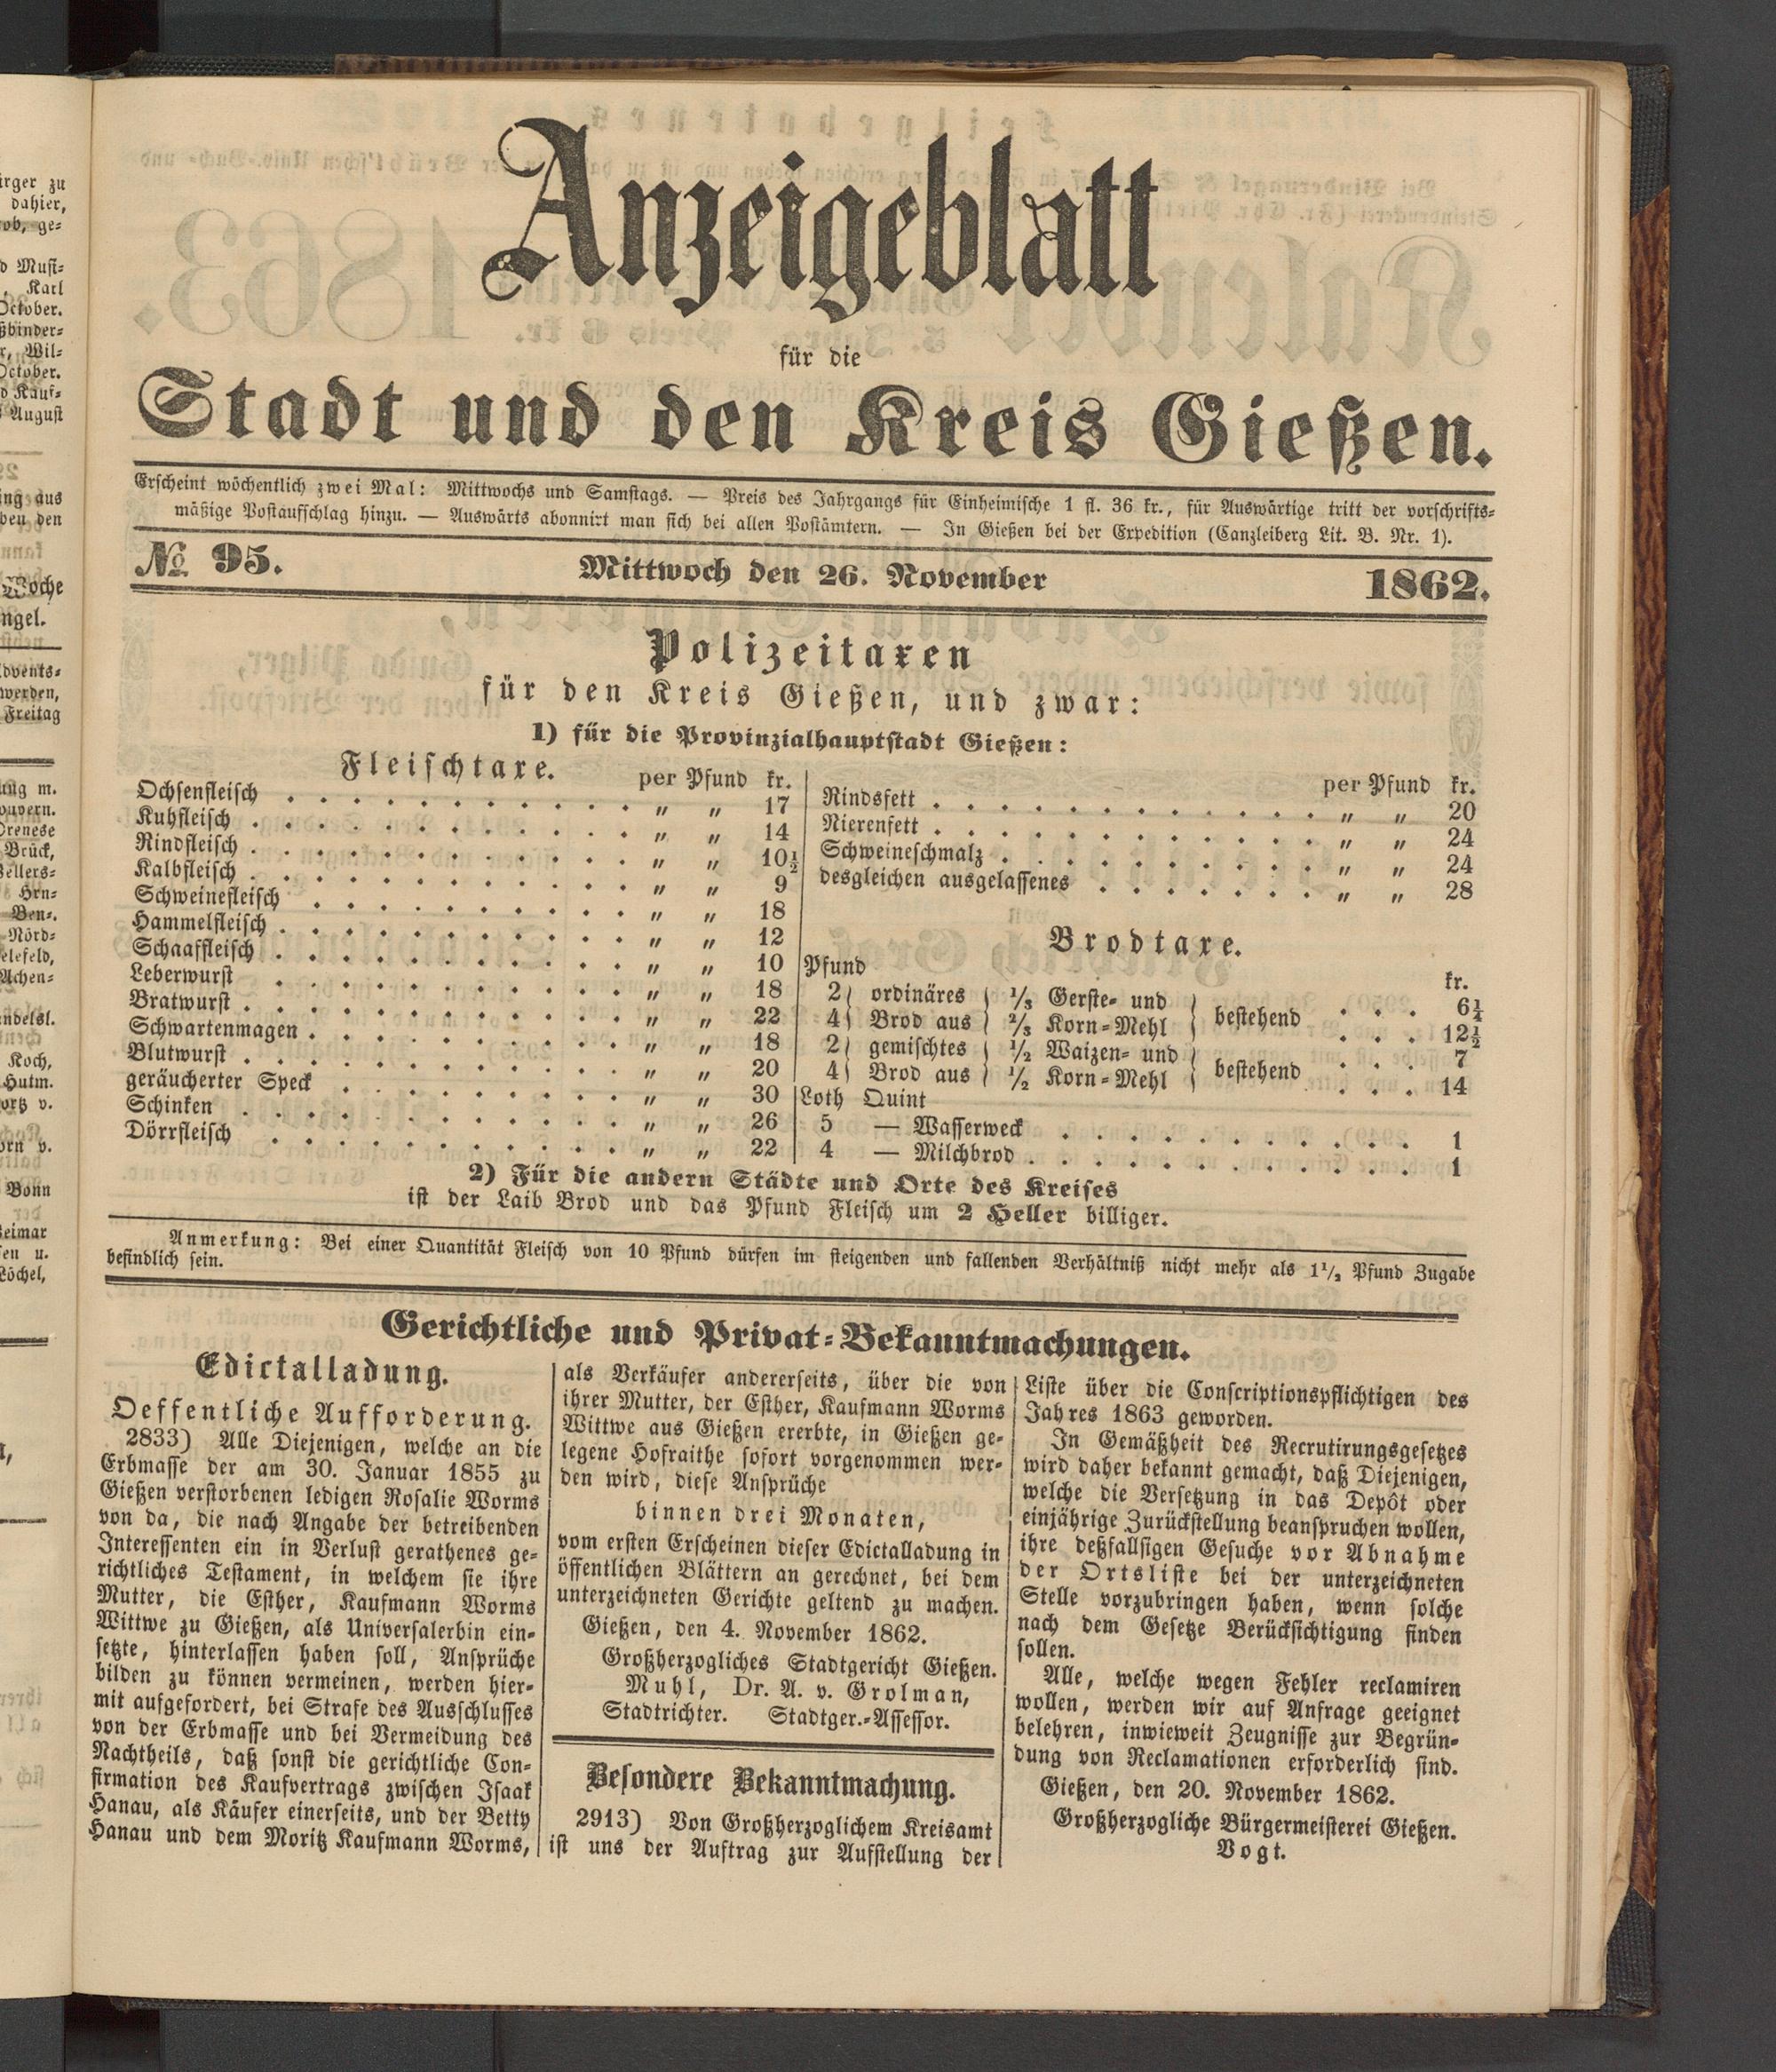 Anzeigeblatt
für die
Stadt und den Kreis Gießen.
Erscheint wöchentlich zwei Mal: Mittwochs und Samstags. — Preis des Jahrgangs für Einheimische 1 fl. 36 kr., für Auswärtige tritt der vorschrifts-
mäßige Postaufschlag hinzu. — Auswärts abonnirt man sich bei allen Postämtern. — In Gießen bei der Expedition (Canzleiberg Lit. B. Nr. 1).
№ 95. Mittwoch den 26. November 1862.
Polizeitaxen
für den Kreis Gießen, und zwar:
1) für die Provinzialhauptstadt Gießen:
Fleischtaxe. per Pfund kr.
Ochsenfleisch . . . . . . . . . . . . „ „ 17
Kuhfleisch . . . . . . . . . . . . „ „ 14
Rindfleisch . . . . . . . . . . . . „ „ 10½
Kalbfleisch . . . . . . . . . . . . „ „ 9
Schweinefleisch . . . . . . . . . . „ „ 18
Hammelfleisch . . . . . . . . . . . „ „ 12
Schaaffleisch . . . . . . . . . . . „ „ 10
Leberwurst . . . . . . . . . . . „ „ 18
Bratwurst . . . . . . . . . . . . „ „ 22
Schwartenmagen . . . . . . . . . . „ „ 18
Blutwurst . . . . . . . . . . . . „ „ 20
geräucherter Speck . . . . . . . . . „ „ 30
Schinken . . . . . . . . . . . . „ „ 26
Dörrfleisch . . . . . . . . . . . „ „ 22
per Pfund kr.
Rindsfett . . . . . . . . . . . . „ „ 20
Nierenfett . . . . . . . . . . . . „ „ 24
Schweineschmalz . . . . . . . . . . „ „ 24
desgleichen ausgelassenes . . . . . . . „ „ 28
Brodtaxe.
Pfund kr.
2) ordinäres ⅓ Gerste- und } bestehend . . . 6¼
4) Brod aus ⅔ Korn-Mehl . . . 12½
2) gemischtes ½ Waizen- und } bestehend . . . 7
4) Brod aus ½ Korn-Mehl . . . 14
Loth Quint
5 — Wasserweck . . . . . . . . . . . 1
4 — Milchbrod . . . . . . . . . . . . 1
2) Für die andern Städte und Orte des Kreises
ist der Laib Brod und das Pfund Fleisch um 2 Heller billiger.
Anmerkung: Bei einer Quantität Fleisch von 10 Pfund dürfen im steigenden und fallenden Verhältniß nicht mehr als 1½ Pfund Zugabe
befindlich sein.
Gerichtliche und Privat-Bekanntmachungen.
Edictalladung.
Oeffentliche Aufforderung.
2833) Alle Diejenigen, welche an die
Erbmasse der am 30. Januar 1855 zu
Gießen verstorbenen ledigen Rosalie Worms
von da, die nach Angabe der betreibenden
Interessenten ein in Verlust gerathenes ge-
richtliches Testament, in welchem sie ihre
Mutter, die Esther, Kaufmann Worms
Wittwe zu Gießen, als Universalerbin ein-
setzte, hinterlassen haben soll, Ansprüche
bilden zu können vermeinen, werden hier-
mit aufgefordert, bei Strafe des Ausschlusses
von der Erbmasse und bei Vermeidung des
Nachtheils, daß sonst die gerichtliche Con-
firmation des Kaufvertrags zwischen Isaak
Hanau, als Käufer einerseits, und der Betty
Hanau und dem Moritz Kaufmann Worms,
als Verkäufer andererseits, über die von
ihrer Mutter, der Esther, Kaufmann Worms
Wittwe aus Gießen ererbte, in Gießen ge-
legene Hofraithe sofort vorgenommen wer-
den wird, diese Ansprüche
binnen drei Monaten,
vom ersten Erscheinen dieser Edictalladung in
öffentlichen Blättern an gerechnet, bei dem
unterzeichneten Gerichte geltend zu machen.
Gießen, den 4. November 1862.
Großherzogliches Stadtgericht Gießen.
Muhl, Dr. A. v. Grolman,
Stadtrichter. Stadtger.-Assessor.
Besondere Bekanntmachung.
2913) Von Großherzoglichem Kreisamt
ist uns der Auftrag zur Aufstellung der
Liste über die Conscriptionspflichtigen des
Jahres 1863 geworden.
In Gemäßheit des Recrutirungsgesetzes
wird daher bekannt gemacht, daß Diejenigen,
welche die Versetzung in das Depôt oder
einjährige Zurückstellung beanspruchen wollen,
ihre deßfallsigen Gesuche vor Abnahme
der Ortsliste bei der unterzeichneten
Stelle vorzubringen haben, wenn solche
nach dem Gesetze Berücksichtigung finden
sollen.
Alle, welche wegen Fehler reclamiren
wollen, werden wir auf Anfrage geeignet
belehren, inwieweit Zeugnisse zur Begrün-
dung von Reclamationen erforderlich sind.
Gießen, den 20. November 1862.
Großherzogliche Bürgermeisterei Gießen.
Vogt.